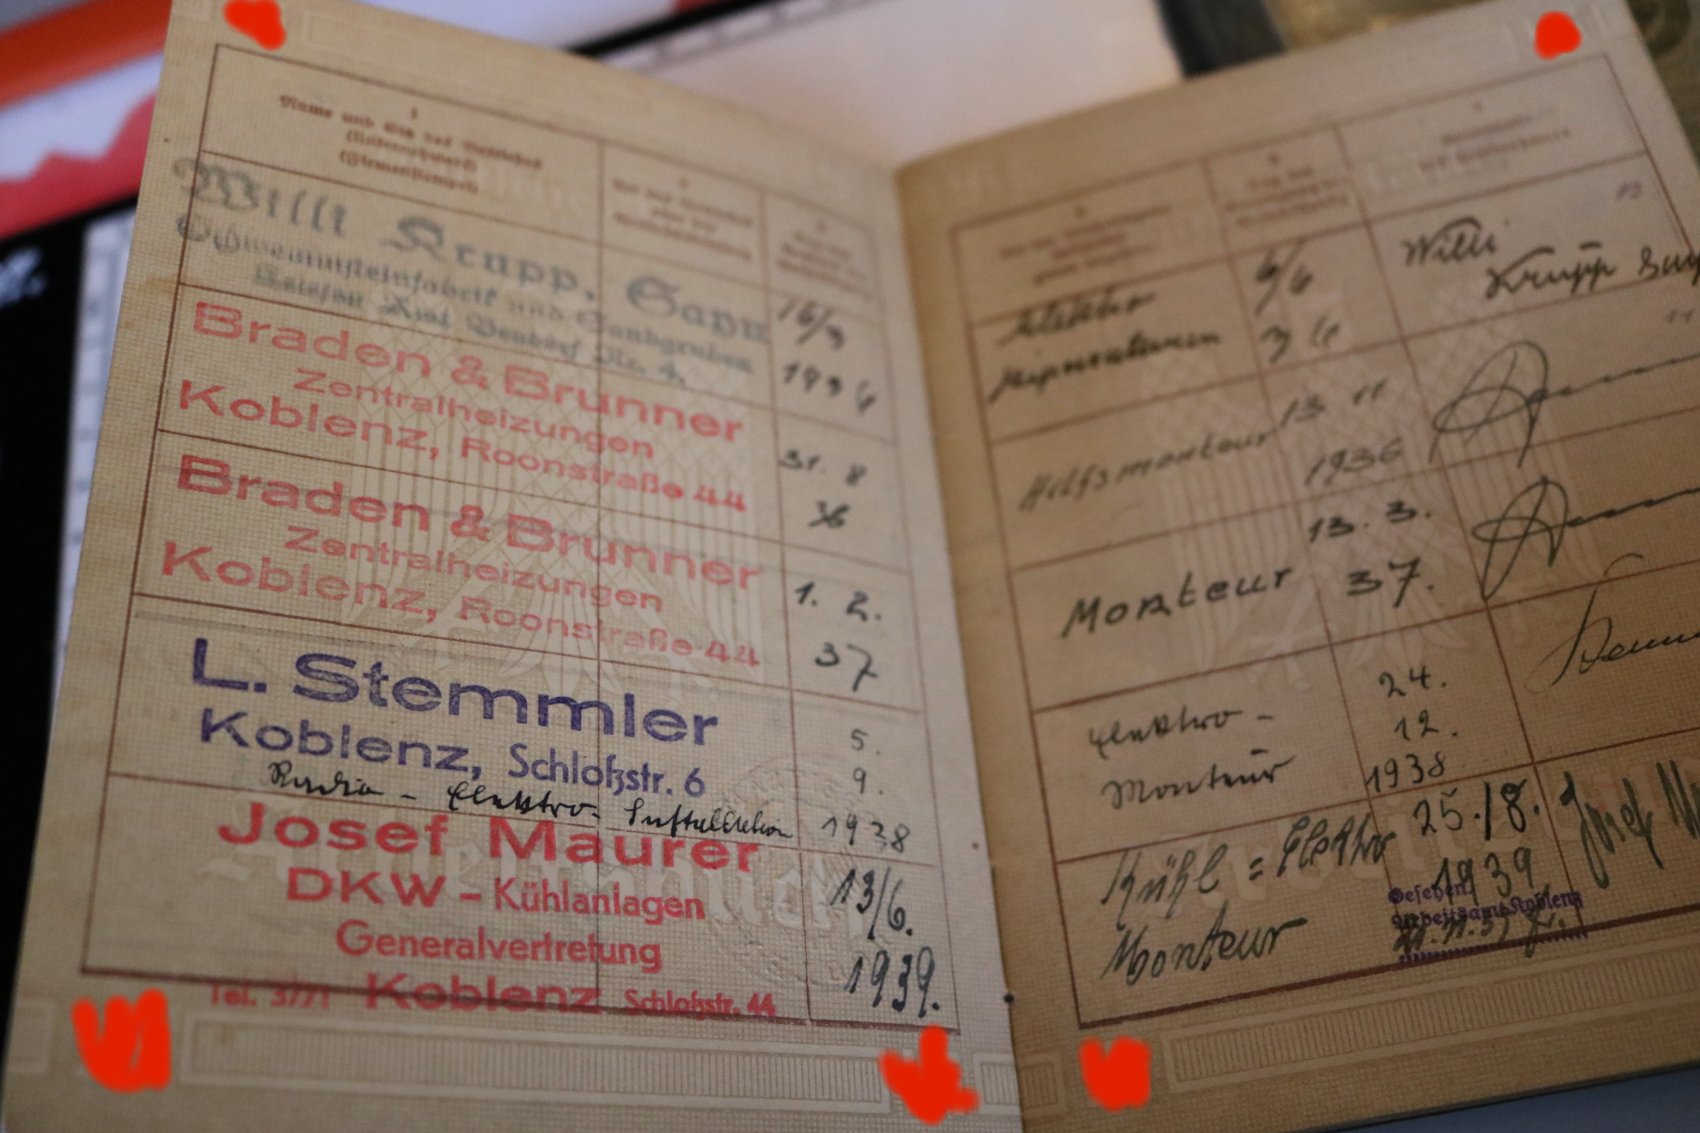 1
Name und Sitz des Betriebes
(Unternehmers)
(Firmenstempel)
Willi Krupp, Sayn
Schwemmsteinfabrik und Sandgruben
Telefon Amt Bendorf Nr. 4
16/3
1936
Braden & Brunner
Zentralheizungen
Koblenz, Roonstraße 44
31. 8
36
Braden & Brunner
Zentralheizungen
Koblenz, Roonstraße 44
1. 2.
37
L. Stemmler
Koblenz, Schloßstr. 6
Radio - Elektro- Installation
5.
9.
1938
Josef Maurer
DKW - Kühlanlagen
Generalvertretung
Tel. 3771 Koblenz Schloßstr. 44
13/6.
1939.
Elektro
Reparaturen
6/6
36
Willi
Krupp Sayn
Hilfsmonteur
13 11
1936
Monteur
13. 3.
37.
Elektro-
Monteur
24.
12.
1938
Kühl = Elektro
Monteur
25./8.
1939
Josef
Gesehen!
Arbeitsamt Koblenz